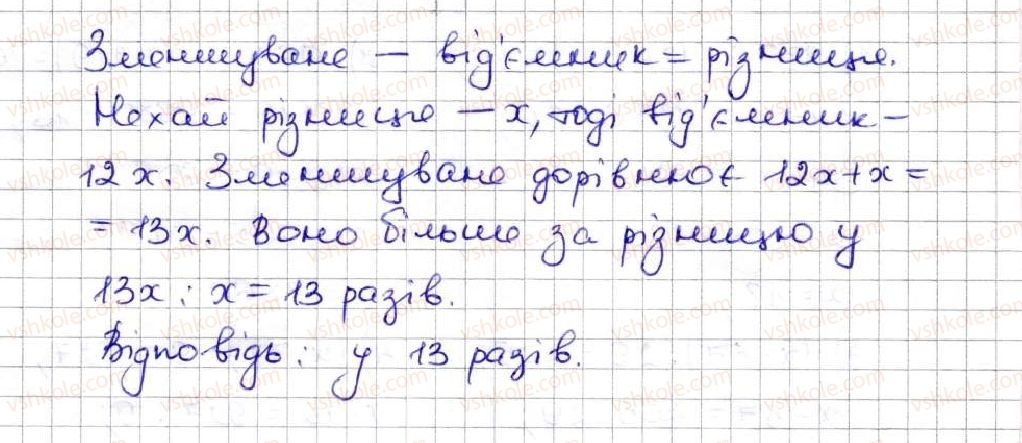 Зменшуване — від'ємник = різниця.
Нехай різниця — х, тоді від'ємник –
12х. Зменшуване дорівнює 12х+х =
= 13х. Воно більше за різницю у
13х : х = 13 разів.
Відповідь: у 13 разів.